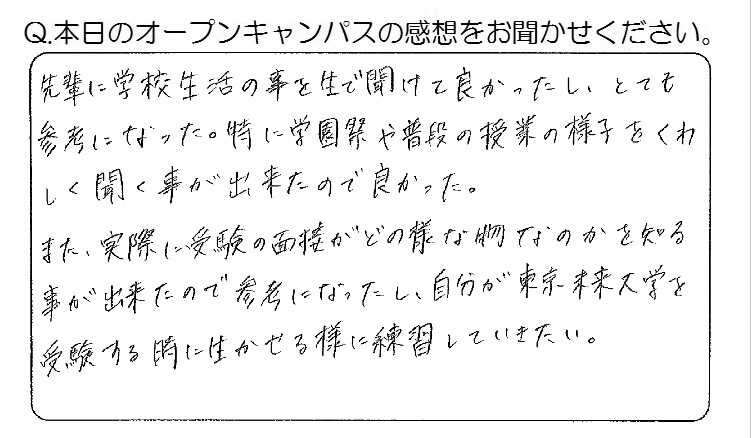 Q.本日のオープンキャンパスの感想をお聞かせください。
先輩に学校生活の事を生で聞けて良かったし、とても
参考になった。特に学園祭や普段の授業の様子をくわ
しく聞く事が出来たので良かった。
また、実際に受験の面接がどの様な物なのかを知る
事が出来たので参考になったし、自分が東京未来大学を
受験する時に生かせる様に練習していきたい。